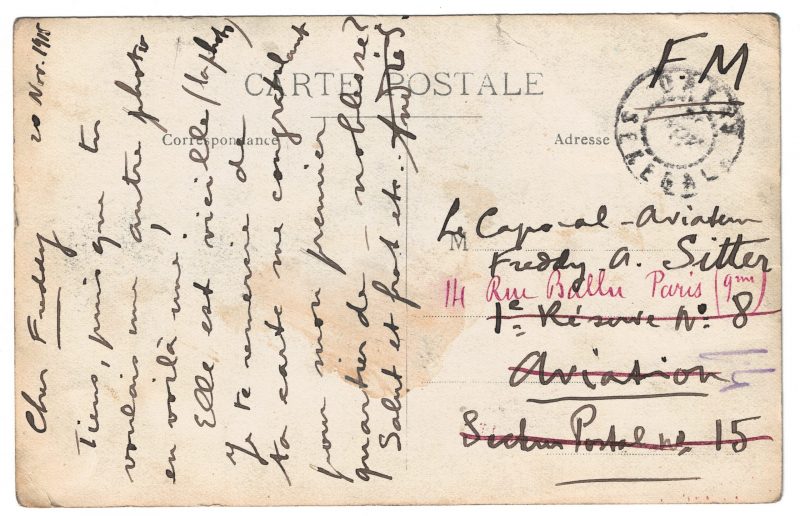 CARTE POSTALE
Correspondance
Adresse
20 Nov. 1915
Cher Freddy
Tiens, puis que tu
voulais une autre photo
en voilà une,
Elle est vieille (la photo)
Je te remercie de
ta carte me congratulant
pour mon premier
quartier de - noblesse?
Salut et frat etc. André.
FM
DAKAR
SENEGAL
M
Le Caporal-Aviateur
Freddy A. Sitter
14 Rue Ballu Paris (9me)
1e Réserve No. 8
Aviation
Secteur Postal No 15